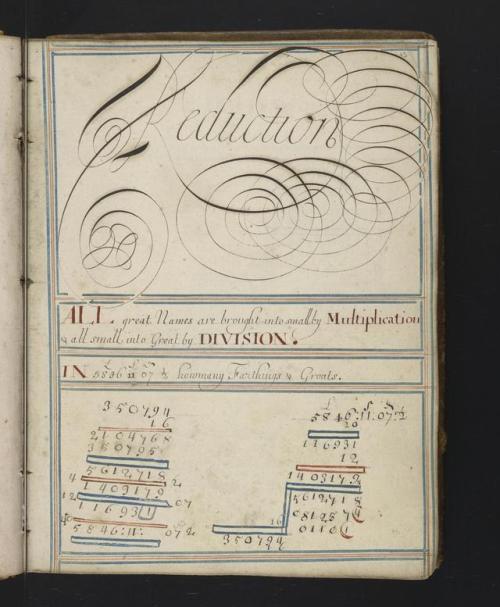 Reduction
ALL great Names are brought into small by Multiplication
& all small into Great by DIVISION.
IN 5846 11 07 ½ howmany Farthings & Groats.
350794
16
2104768
350795
5612718
4 1403179 2
12 116931 07
5846:11: 07 2
5846:11:07½
20
116931
12
1403179
5612718
16
350794